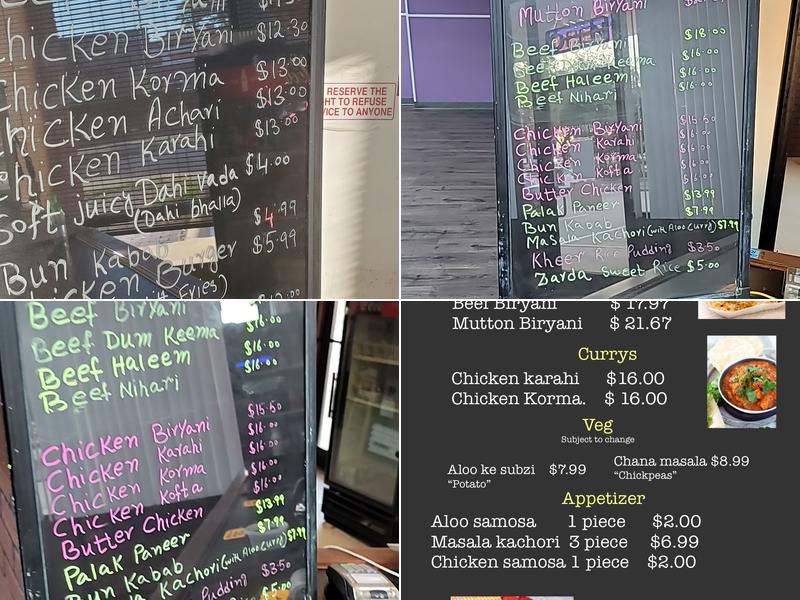 Chicken Biryani $12.30
Chicken Korma $13.00
Chicken Achari $13.00
Chicken Karahi $13.00
Soft juicy Dahi Vada $4.00
(Dahi bhalla)
Bun Kabab $4.99
Burger $5.99
Fries)
RESERVE THE
HT TO REFUSE
VICE TO ANYONE
Mutton Biryani
Beef Biryani $18.00
Beef Dum Keema $16.00
Beef Haleem $16.00
Beef Nihari $16.00
Chicken Biryani $15.50
Chicken Karahi $16.00
Chicken Korma $16.00
Chicken Kofta $16.00
Butter Chicken $16.00
Palak Paneer $13.99
Bun Kabab $7.99
Masala Kachori (with Aloo Curry) $7.99
Kheer Rice Pudding $3.50
Zarda Sweet Rice $5.00
Beef Biryani
Beef Dum Keema $16.00
Beef Haleem $16.00
Beef Nihari $16.00
Chicken Biryani $15.50
Chicken Karahi $16.00
Chicken Korma $16.00
Chicken Kofta $16.00
Butter Chicken $16.00
Palak Paneer $13.99
Bun Kabab $7.99
Kachori (with Aloo Curry) $7.99
Pudding $3.50
$5.00
Beef Biryani $ 17.97
Mutton Biryani $ 21.67
Currys
Chicken karahi $16.00
Chicken Korma. $ 16.00
Veg
Subject to change
Aloo ke subzi $7.99
"Potato"
Chana masala $8.99
"Chickpeas"
Appetizer
Aloo samosa 1 piece $2.00
Masala kachori 3 piece $6.99
Chicken samosa 1 piece $2.00